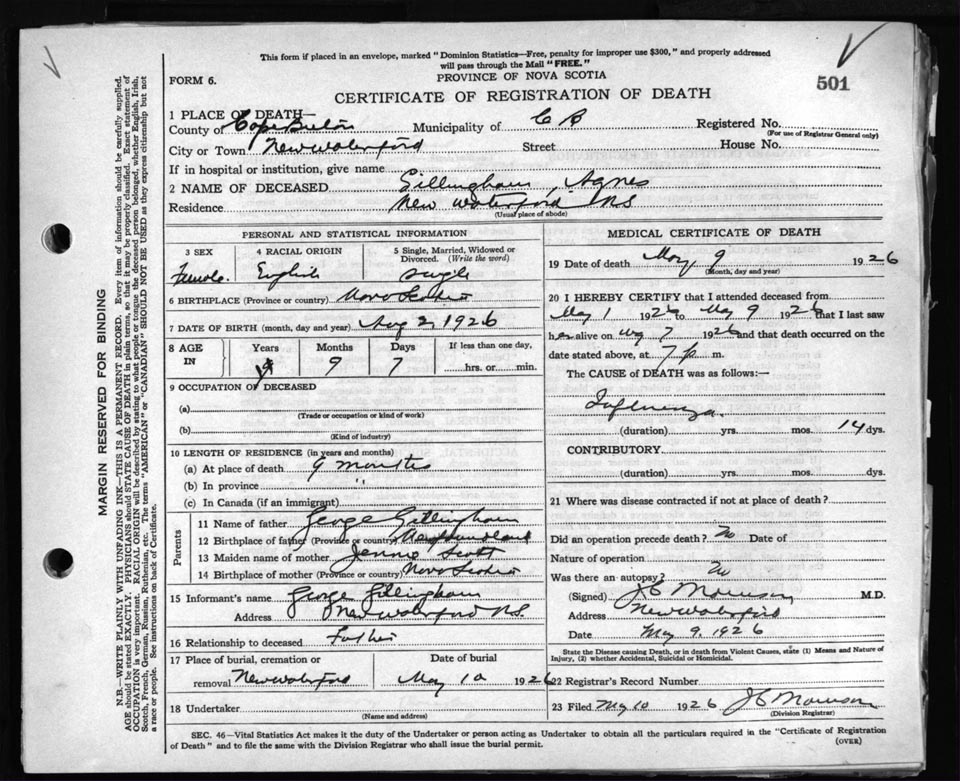 This form if placed in an envelope, marked "Dominion Statistics—Free, penalty for improper use $300," and properly addressed
will pass through the Mail "FREE."
FORM 6.
PROVINCE OF NOVA SCOTIA
501
CERTIFICATE OF REGISTRATION OF DEATH
1 PLACE OF DEATH—
County of Cape Breton Municipality of C B Registered No.
(For use of Registrar General only)
City or Town New Waterford Street House No.
If in hospital or institution, give name
2 NAME OF DECEASED Gillingham, Agnes
Residence New Waterford NS
(Usual place of abode)
PERSONAL AND STATISTICAL INFORMATION
3 SEX 4 RACIAL ORIGIN 5 Single, Married, Widowed or
Divorced. (Write the word)
Female English single
6 BIRTHPLACE (Province or country) Nova Scotia
7 DATE OF BIRTH (month, day and year) Aug 2, 1926
8 AGE IN Years Months Days If less than one day,
9 7 hrs. or min.
9 OCCUPATION OF DECEASED
(a)
(Trade or occupation or kind of work)
(b)
(Kind of industry)
10 LENGTH OF RESIDENCE (in years and months)
(a) At place of death 9 months
(b) In province "
(c) In Canada (if an immigrant)
Parents
11 Name of father George Gillingham
12 Birthplace of father (Province or country) Newfoundland
13 Maiden name of mother Jennie Scott
14 Birthplace of mother (Province or country) Nova Scotia
15 Informant's name George Gillingham
Address New Waterford N.S.
16 Relationship to deceased Father
17 Place of burial, cremation or Date of burial
removal New Waterford May 10 1926
18 Undertaker
(Name and address)
MEDICAL CERTIFICATE OF DEATH
19 Date of death May 9 1926
(Month, day and year)
20 I HEREBY CERTIFY that I attended deceased from
May 1 1926 to May 9 1926 that I last saw
her alive on May 7 1926 and that death occurred on the
date stated above, at 7 p m.
The CAUSE of DEATH was as follows:—
Influenza
(duration) yrs. mos. 14 dys.
CONTRIBUTORY
(duration) yrs. mos. dys.
21 Where was disease contracted if not at place of death?
Did an operation precede death? No Date of
Nature of operation
Was there an autopsy? No
(Signed) J C Morrison M.D.
Address New Waterford
Date May 9, 1926
State the Disease causing Death, or in death from Violent Causes, state (1) Means and Nature of
Injury, (2) whether Accidental, Suicidal or Homicidal.
22 Registrar's Record Number
23 Filed May 10 1926 J C Morrison
(Division Registrar)
SEC. 46—Vital Statistics Act makes it the duty of the Undertaker or person acting as Undertaker to obtain all the particulars required in the "Certificate of Registration
of Death" and to file the same with the Division Registrar who shall issue the burial permit.
(OVER)
MARGIN RESERVED FOR BINDING
N.B.—WRITE PLAINLY WITH UNFADING INK—THIS IS A PERMANENT RECORD. Every item of information should be carefully supplied.
AGE should be stated EXACTLY. PHYSICIANS should STATE CAUSE OF DEATH in plain terms, so that it may be properly classified. Exact statement of
OCCUPATION is very important. RACIAL ORIGIN will be described by stating to what people or tongue the deceased person belonged, whether English, Irish,
Scotch, French, German, Russian, Ruthenian, etc. The terms "AMERICAN" or "CANADIAN" SHOULD NOT BE USED as they express citizenship but not
a race or people. See instructions on back of Certificate.